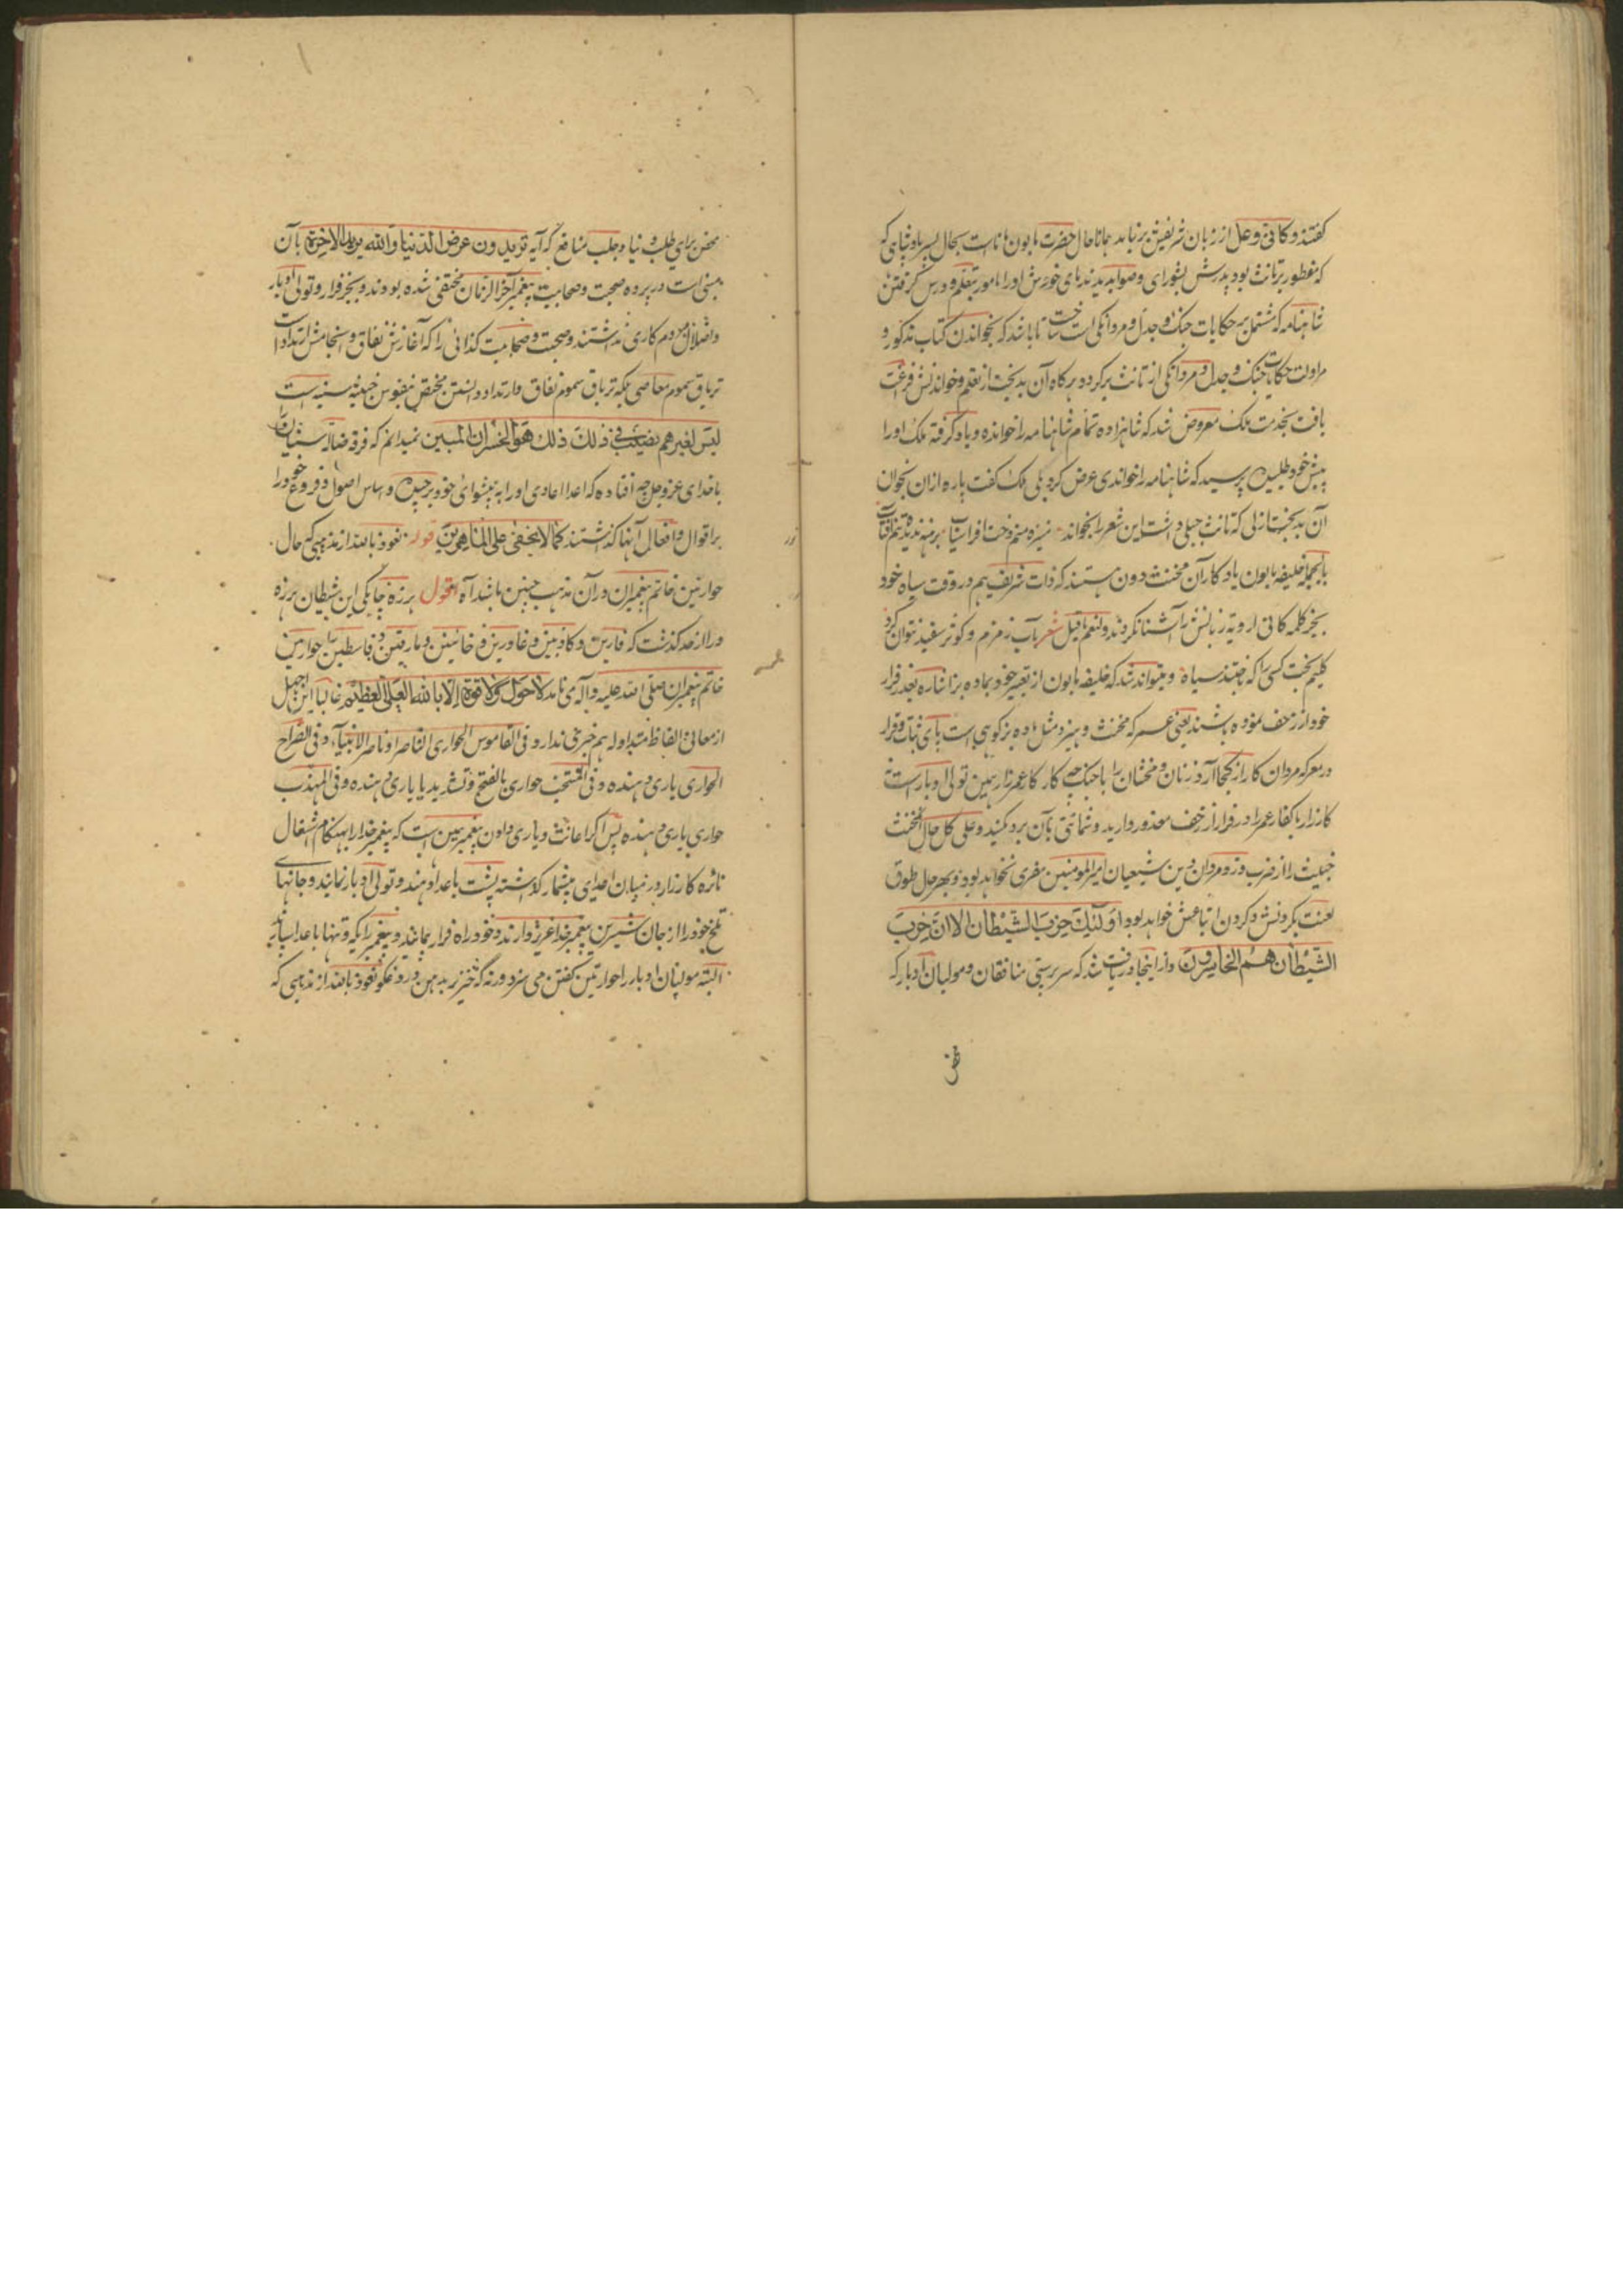 گفتند و کانی و عل از زبان شریفش برنیاید همانا حال حضرت مابون مانا است بحال پسر پادشاهی که
که مفطور بر تانث بود پدرش بشورای و صوابدید ندمای خودش او را مامور بتعلم و درس گرفتن
شاهنامه که مشتمل بر حکایات جنک و جدل و مردانکی است ساخت تا باشد که بخواندن کتاب مذکور و
مزاولت حکایات جنک و جدل و مردانکی از تانث برکردد هرکاه آن بدبخت از تعلم و خواندنش فراغت
یافت بخدمت ملک معروض شد که شاهزاده تمام شاهنامه را خوانده و یاد گرفته ملک او را
پیش خود طلبیده پرسید که شاهنامه را خواندی عرض کرد بلی ملک گفت پاره ازان بخوان
آن بدبخت ازلی که تانث جبلی داشت این شعر را بخواند منیژه منم دخت افراسیاب برهنه ندیده تنم آفتاب
بالجمله خلیفه مابون یادکار آن مخنث دون هستند که ذات شریف هم در وقت سیاه خود
بجز کلمه کانی ارویه زبانش را آشنا نکردند و لنعم ما قیل شعر بآب زمزم و کوثر سفید نتوان کرد
کلیم بخت کسی را که بافتند سیاه و میتواند شد که خلیفه مابون از تعبیر خود بماده بز اشاره بعذر فرار
خود از زحف نموده باشند یعنی عمر که مخنث و هیز و مثل ماده بز کوهی است پای ثبات و قرار
در معرکه مردان کارزار کجا آرد زنان و مخنثان را با جنک چه کار کار عمر زار همین تولی ادبار است نه
کارزار با کفار عمر را در فرار از زحف معذور دارید و شماتتی بآن برد مکنید و علی کل حال آن مخنث
خبیث را از ضرب و زد مردان دین شیعیان امیرالمومنین مفری نخواهد بود و بهر حال طوق
لعنت بکردنش و کردن اتباعش خواهد بود اولئک حزب الشیطان الا ان حزب
الشیطان هم الخاسرون و از اینجا دریافت شد که سرپرستی منافقان و مولیان ادبار که
محض
محض برای طلب دنیا و جلب منافع که آیه تریدون عرض الدنیا والله یرید الاخرة بآن
مبنی است در پرده صحبت و صحابیت پیغمبر آخر الزمان مختفی شده بودند و بجز فرار و تولی ادبار
و اضلال مردم کاری نداشتند و صحبت و صحابیت کذائی را که آغازش نفاق و انجامش ارتداد است
تریاق سموم معاصی بلکه تریاق سموم نفاق و ارتداد دانستن مختص بنفوس خبیثه سنیه است
لیس لغیرهم نصیب فی ذلک ذلک هو الخسران المبین نمیدانم که فرقه ضاله سنیان را
با خدای عز و جل چه افتاده که اعدا اعادی او را به پیشوائی خود برچیده و اساس اصول و فروع خود را
بر اقوال و افعال آنها کذاشتند کما لا یخفی علی الماهرین قوله نعوذ بالله از مذهبی که حال
حوارئین خاتم پیغمبران در آن مذهب چنین باشد آه اقول هرزه چانکی این شیطان هرزه
درا از حد گذشت که فارین و کاذبین و غادرین و خائنین و مارقین و قاسطین را حوارئین
خاتم پیغمبران صلی الله علیه و آله می نامد لا حول و لا قوة الا بالله العلی العظیم غالبا این اجهل
از معانی الفاظ متداوله هم خبر نمی دارد و فی القاموس الحواری الناصر او ناصر الانبیاء و فی الصراح
الحواری یاری دهنده و فی المنتخب حواری بالفتح و تشدید یا یاری دهنده و فی المهذب
حواری یاری دهنده پس اکر اعانت و یاری دادن پیغمبر همین است که پیغمبر خدا را بهنکام اشتعال
نائره کارزار در میان اعدای بیشمار گذاشته پشت باعدا دهند و تولی ادبار نمایند و جانهای
تلخ خود را از جان شیرین پیغمبر خدا عزیز دارند و خود راه فرار پیمایند و پیغمبر را یکه و تنها باعدا سپارند
البته مولیان ادبار را حوارئین گفتن می سزد ورنه گه خنزیر بدهن دروغگو نعوذ بالله از مذهبی که